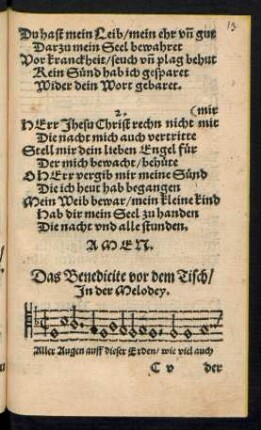 13
Du hast mein Leib/mein ehr vñ gut
Darzu mein Seel bewahret
Vor kranckheit/seuch vñ plag behut
Kein Sünd hab ich gesparet
Wider dein Wort gebaret.
2. (mir
HErr Jhesu Christ rechn nicht mit
Die nacht mich auch vertritte
Stell mir dein lieben Engel für
Der mich bewacht/behüte
O HErr vergib mir meine Sünd
Die ich heut hab begangen
Mein Weib bewar/mein kleine kind
Hab dir mein Seel zu handen
Die nacht vnd alle stunden.
AMEN.
Das Benedicite vor dem Tisch/
In der Melodey.
Aller Augen auff dieser Erden/ wie viel auch
C v der